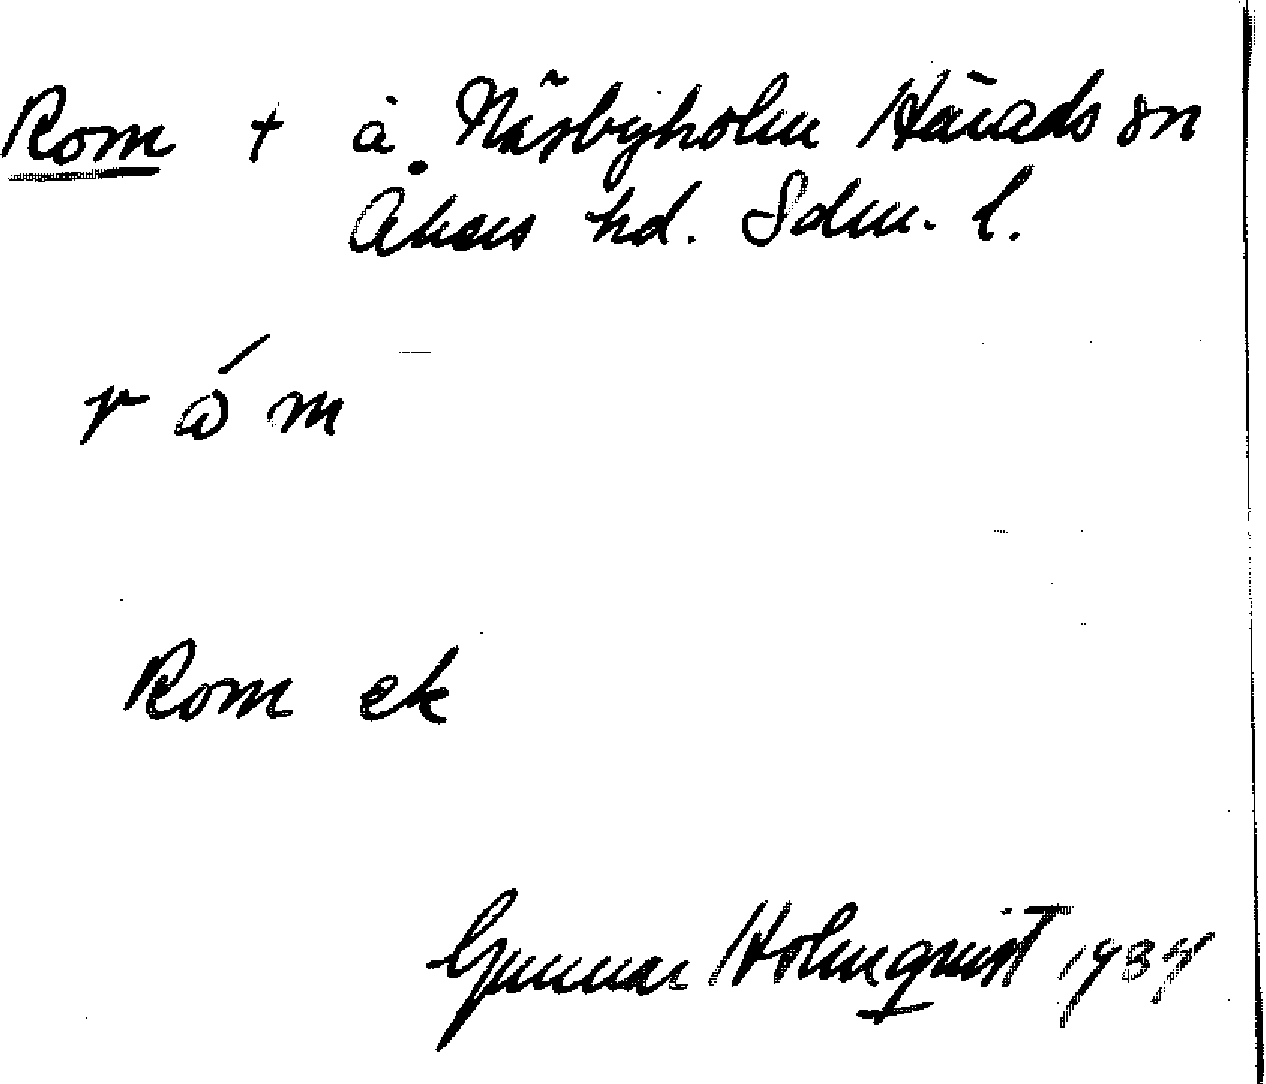 Rom + å Näsbyholm Härads sn
Åkers hd. Sdm. l.
r ó m
Rom ek
Gunnar Holmquist 1935